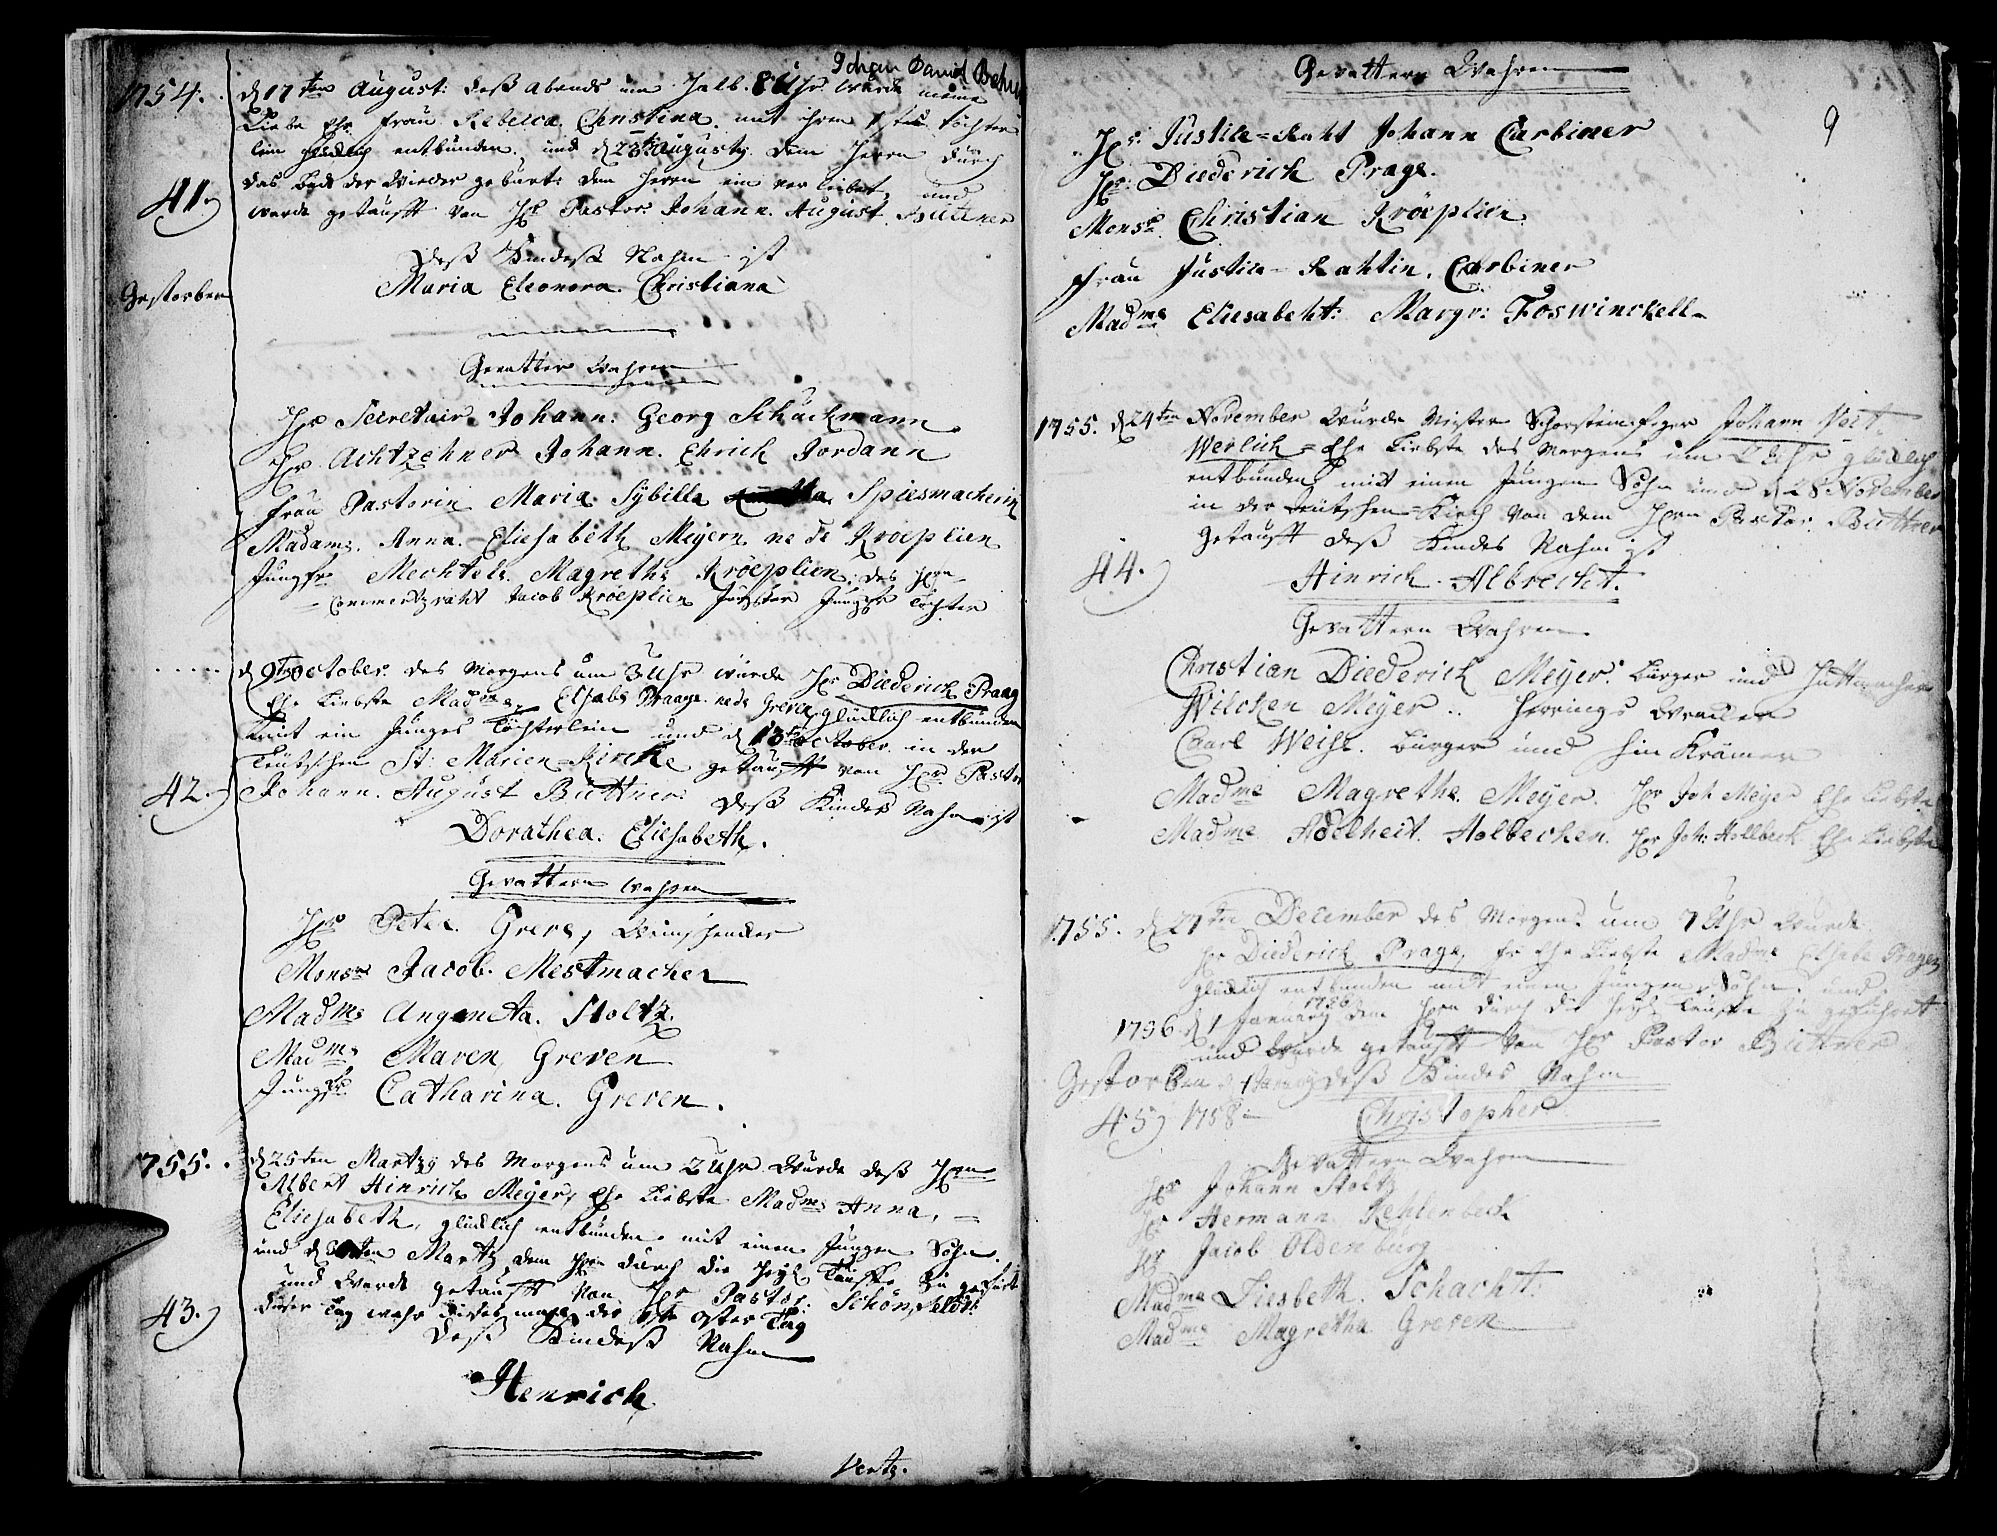 Johan Daniel Behn
1754. d 17ten August: deß abends um halb 8 Uhr wurde meine
Liebe Ehe Frau Rebecca Christina mit ihrem Töchter
lein glücklich entbunden, und d 22ten Augusty dem Herrn durch
das Bad der Wieder geburt dem Herrn ein verleibet, und
41) wurde getaufft von Hr Pastor Johann August Büttner
Deß Kindeß Nahm ist
Gestorben
Maria Eleonora Christiana
Gevatter Wahren
Hr Secretair Johann: Georg Schuckmann
Hr Achtzehner Johann Ehrich Jordann
Frau Pastorin Maria Sybilla Spiesmacherin
Madame Anna Eliesabeth Meyern ne de Kroeplien
Jungfr Mechtele Magretha Kröeplien, des Hrn
Commertzraht Jacob Kröeplien Jungfr Töchter
d 9t October des Morgens um 3 Uhr würde Hr Diederich Praag
Ehe Liebste Madme Elsabe Praage nede Greven, glücklich entbunden
mit ein Junges Töchterlein und d 13t October in der
Teütschen St: Marien Kirche getaufft von Hr Pastor
42.) Johann August Büttner Deß Kindes Nahm ist
Dorathea: Eliesabeth.
Gevattern Wahren
Hr Peter Greve, Weinschencker
Monsr Jacob Mestmacher
Madme Angeneta Stoltz
Madme Maren Greven
Jungfr Catharina Greven.
1755. d 25ten Martzy des Morgens um 2 Uhr Wurde deß Hrn
Albert Hinrich Meyer, Ehe Liebste Madme Anna,
Eliesabeth, glücklich entbunden mit einen Jungen Sohn
und d ten Martz dem Hrn durch die Heyl Tauffe zu geführt
und Wurde getaufft von Hr Pastor: Schönfeldt
43.) dieser Tag wahr dieses mahl der 1ste Oster Tag
Deß Kindeß Nahm
Henrich
Vertz.
Gevattern Wahren
9
Hr: Justice=Raht Johann Carbiner
Hr: Diederich Prage.
Monsr Christian Kröeplien
Frau Justice=Rahtin Carbiner
Madme Eliesabeht: Margr: Foswinckell
1755. d 24ten November Wurde Meister Schorsteinfeger Johann Veit
Werlich = Ehe Liebste des Morgens um Uhr glücklich
entbunden mit einen Jungen Sohn und d 28 November
in der Teutschen Kirch von dem Hrn Pastor Büttner
getaufft deß Kindes Nahm ist
44.) Hinrich Albrecht.
Gevattern Wahren
Christian Diederich Meyer. Bürger und Huttmacher
Wilcken Meyer .. Herrings Wracker
Caarl Weise. Bürger und Krämer
Madme Magretha Meyer. Hr Joh Meyer Ehe Liebste
Madme Adelheit Holbecken. Hr Joh: Hollbeck Ehe Liebste
1755. d 27ten December des Morgens um 7 Uhr Wurde
Hr Diederich Prage, Ehe Liebste Madme Elsabe Pragen
glücklich entbunden mit einem Jungen Sohn und
1756
1756 d 1 January dem Hrn durch die Heyl Tauffe zu geführt
und Wurde getaufft von Hr Pastor Büttner
Gestorben deß Kindes Nahm
45) 1758 Christopher
Gevattern Wahren
Hr Johann Stoltz
Hr Hermann Kehlenbeck
Hr Jacob Oldenburg
Madme Liesbeth Schacht.
Madme Magretha Greven